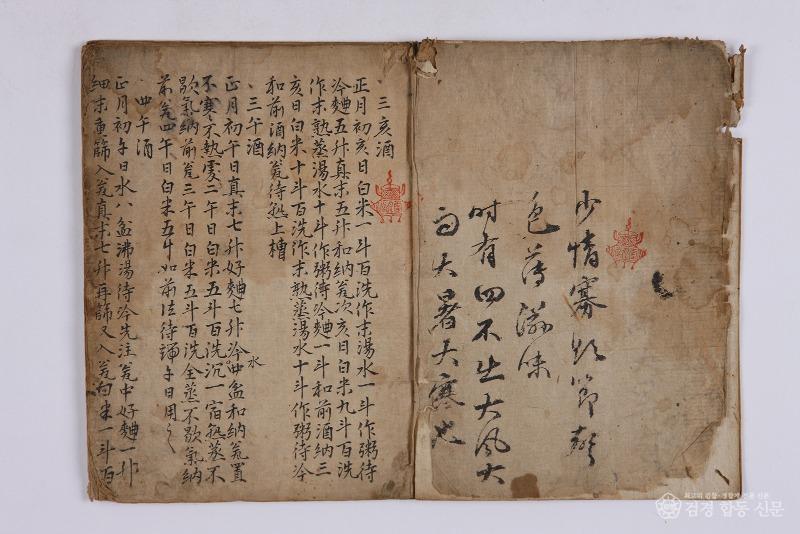 少情寡慾節聲
色薄滋味
時有四不出大風大
雨大暑大寒也
三亥酒
正月初亥日白米一斗百洗作末湯水一斗作粥待
冷麯五升真末五升和納瓮次亥日白米九斗百洗
作末熟蒸湯水十斗作粥待冷麯一斗和前酒納三
亥日白米十斗百洗作末熟蒸湯水十斗作粥待冷
和前酒納瓮待熟上槽
三午酒
正月初午日真末七升好麯七升冷水四盆和納瓮置
不寒不熱處二午日白米五斗百洗沉一宿熟蒸不
歇氣納前瓮三午日白米五斗百洗全蒸不歇氣納
前瓮四午日白米五斗如前法待端午日用之
四午酒
正月初午日水八盆沸湯待冷先注瓮中好麯一升
細末重篩入瓮真末七升再篩又入瓮白米一斗百
검경합동신문